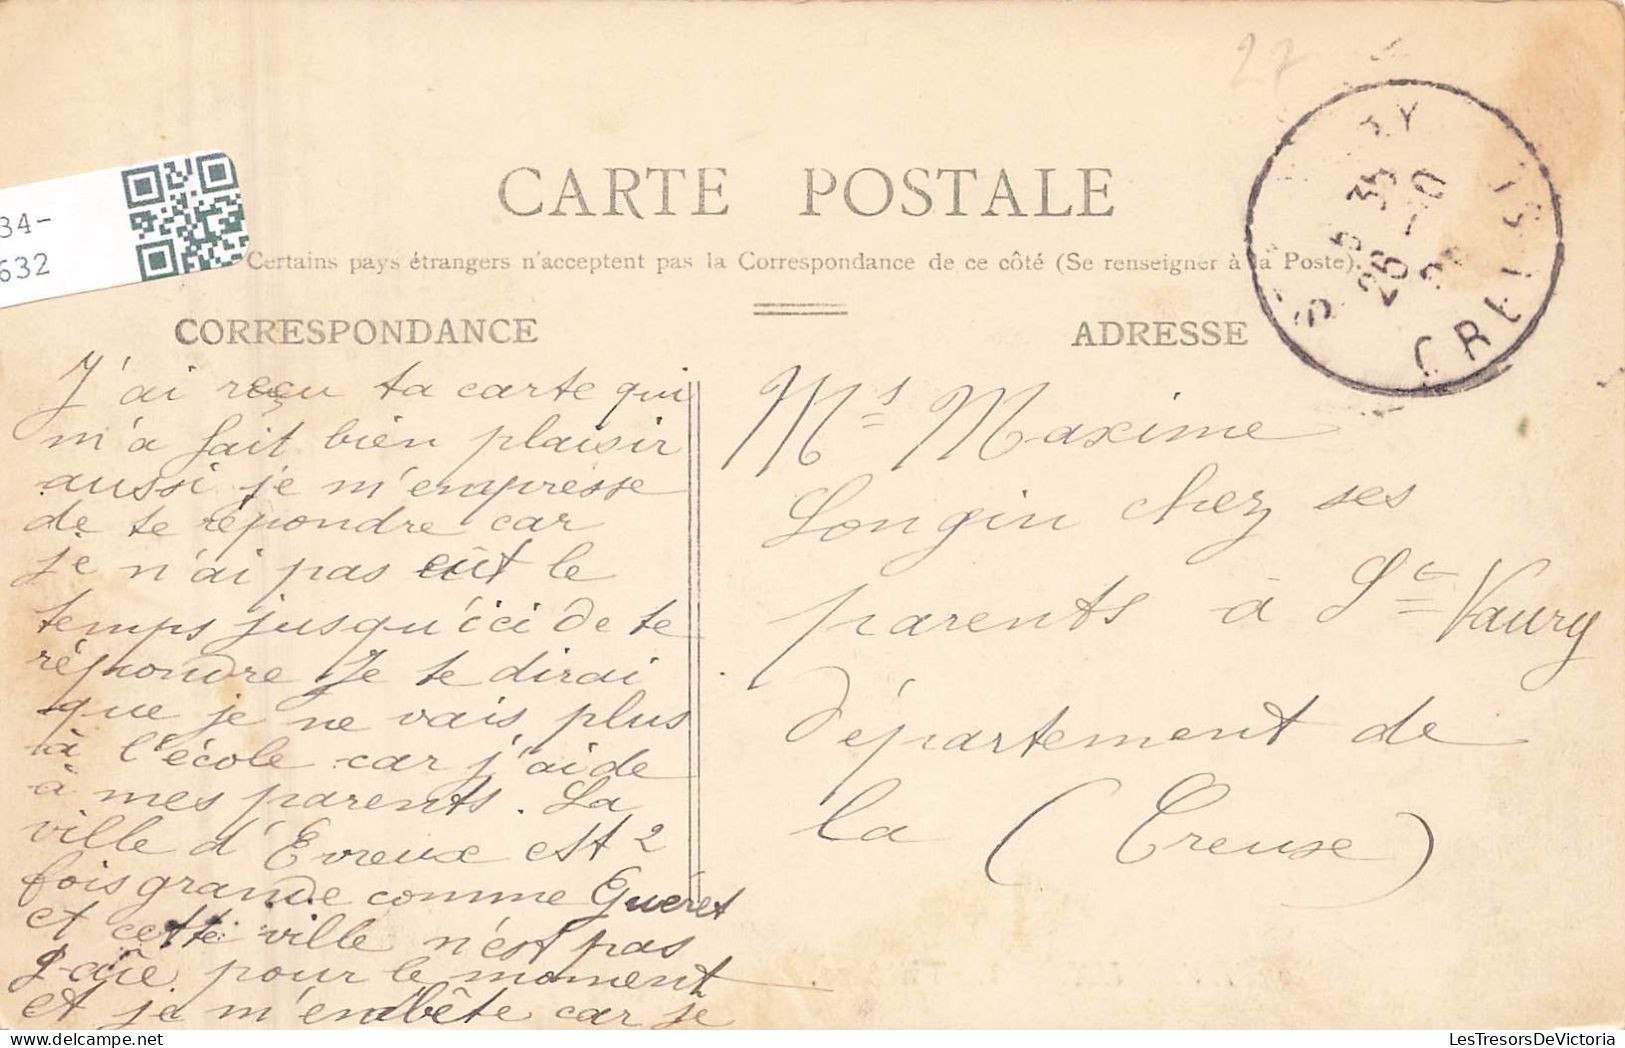 27
CARTE POSTALE
34-
632
Certains pays étrangers n'acceptent pas la Correspondance de ce côté (Se renseigner à la Poste).
CORRESPONDANCE
J'ai reçu ta carte qui
m'a fait bien plaisir
aussi je m'empresse
de te répondre car
je n'ai pas eût le
temps jusqu'ici de te
répondre Je te dirai
que je ne vais plus
à l'école car j'aide
à mes parents. La
ville d'Evreux est 2
fois grande comme Guéret
et cette ville n'est pas
gaîe pour le moment
et je m'embête car je
ADRESSE
Ms Maxime
Longin chez ses
parents à St Vaury
département de
la (Creuse)
26 -10
CREUSE
LesTresorsDeVictoria.com